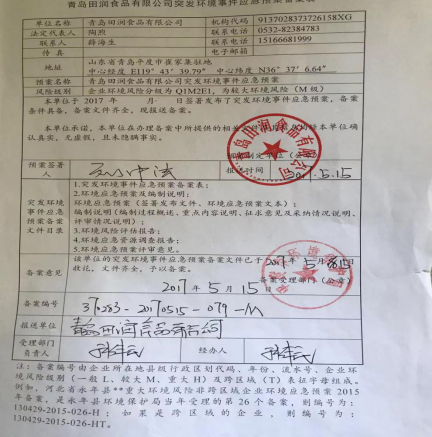 青岛田润食品有限公司突发环境事件应急预案备案表
单位名称 青岛田润食品有限公司 机构代码 91370283732615 8XG
法定代表人 陶煦 联系电话 0532-82384783
联系人 薛海生 联系电话 15166681999
传真 电子邮箱
地址 山东省青岛平度市崔家集驻地
中心经度 E119°43′39.79″ 中心纬度 N36°37′6.64″
预案名称 青岛田润食品有限公司突发环境事件应急预案
风险级别 企业环境风险分级为Q1M2E1,为较大环境风险(M级)
本单位于2017年 月 日签署发布了突发环境事件应急预案,备案
条件具备,备案文件齐全,现报送备案。
本单位承诺,本单位在办理备案中所提供的相关 本单位确
认真实,无虚假,且未隐瞒事实。
青岛田润食品有限公司
预案签署人 报送时间 2017.5.15
突发环境事件应急预案备案文件目录
1.突发环境事件应急预案备案表;
2.环境应急预案及编制说明:
环境应急预案(签署发布文件、环境应急预案文本);
编制说明(编制过程概述、重点内容说明、征求意见及采纳情况说明、
评审情况说明);
3.环境风险评估报告;
4.环境应急资源调查报告;
5.环境应急预案评审意见。
备案意见
该单位的突发环境事件应急预案备案文件已于2017年5月15日
收讫,文件齐全,予以备案。
备案受理部门
2017年5月15日
备案编号 370283-20170515-079-M
报送单位 青岛田润食品有限公司
受理部门负责人 经办人
注:备案编号由企业所在地县级行政区划代码、年份、流水号、企业环
境风险级别(一般L、较大M、重大H)及跨区域(T)表征字母组成。
例如,河北省永年县**重大环境风险非跨区域企业环境应急预案2015
年备案,是永年县环境保护局当年受理的第26个备案,则编号为:
130429-2015-026-H;如果是跨区域的企业,则编号为:
130429-2015-026-HT。